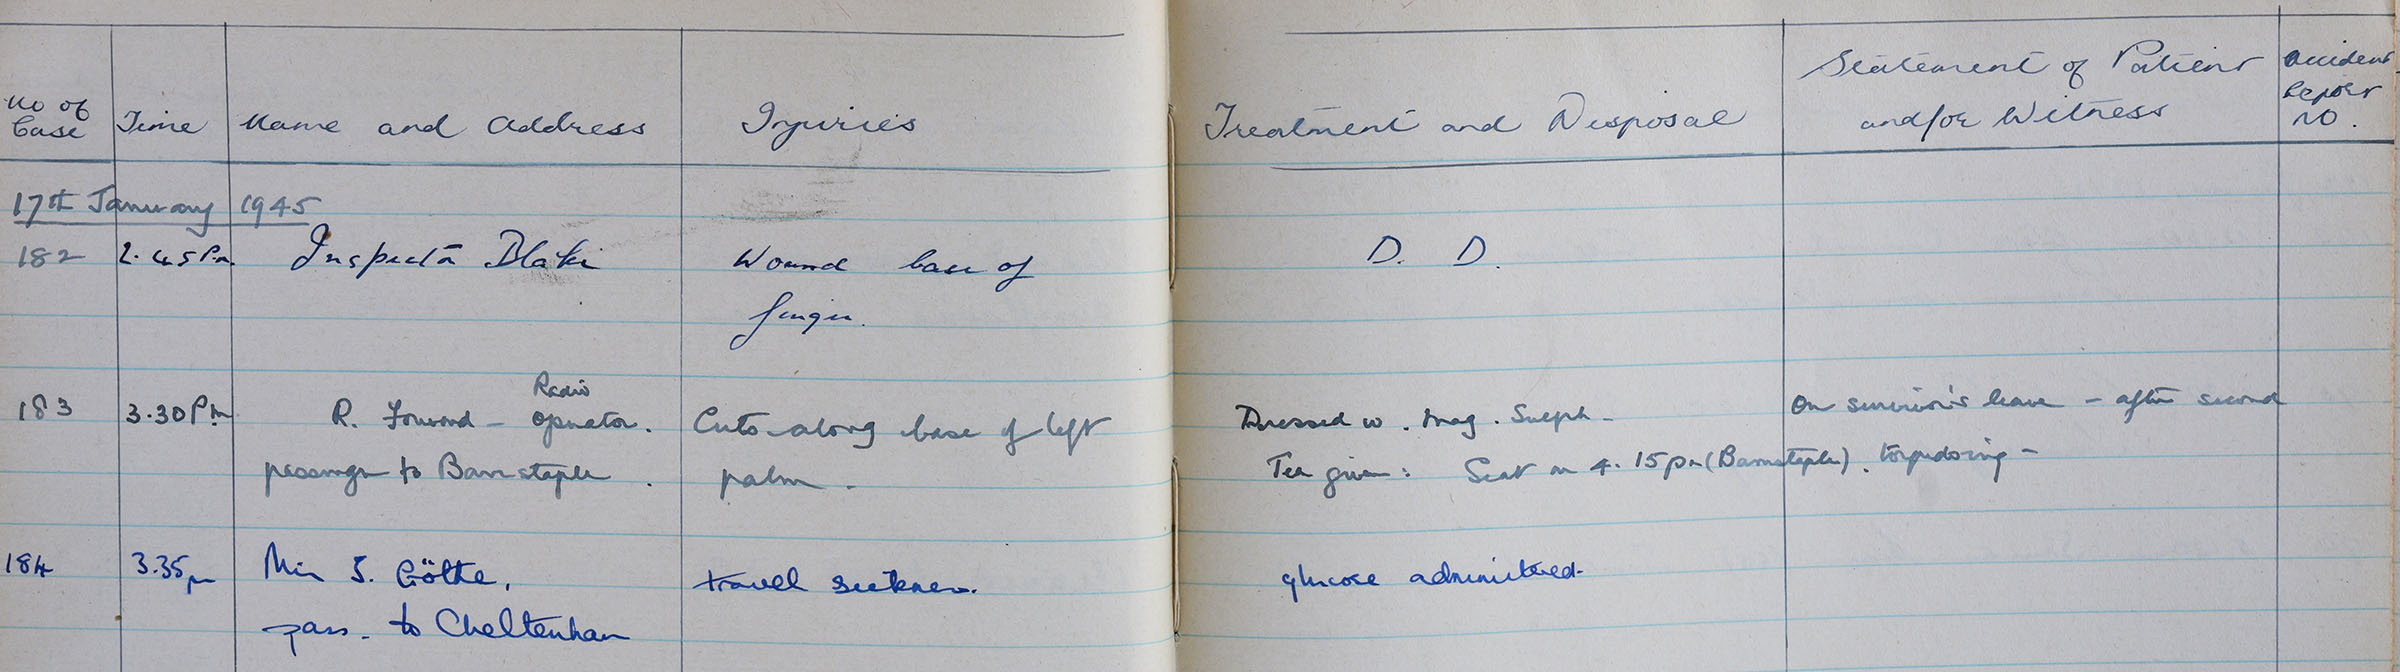 No of Case
Time
Name and Address
Injuries
Treatment and Disposal
Statement of Patient and/or Witness
Accident Report No.
17th January 1945
182 2.45 Pm. Inspector Blake Wound base of D. D.
finger.
183 3.30 Pm R. Forward - Radio Operator. Cuts along base of left Dressed w. Mag. Sulph - On survivor's leave - after second
passenger to Barnstaple. palm - Tea given: Seat on 4.15pm (Barnstaple). torpedoing -
184 3.35pm Miss S. Götke, travel sickness. glucose administered.
pass. to Cheltenham